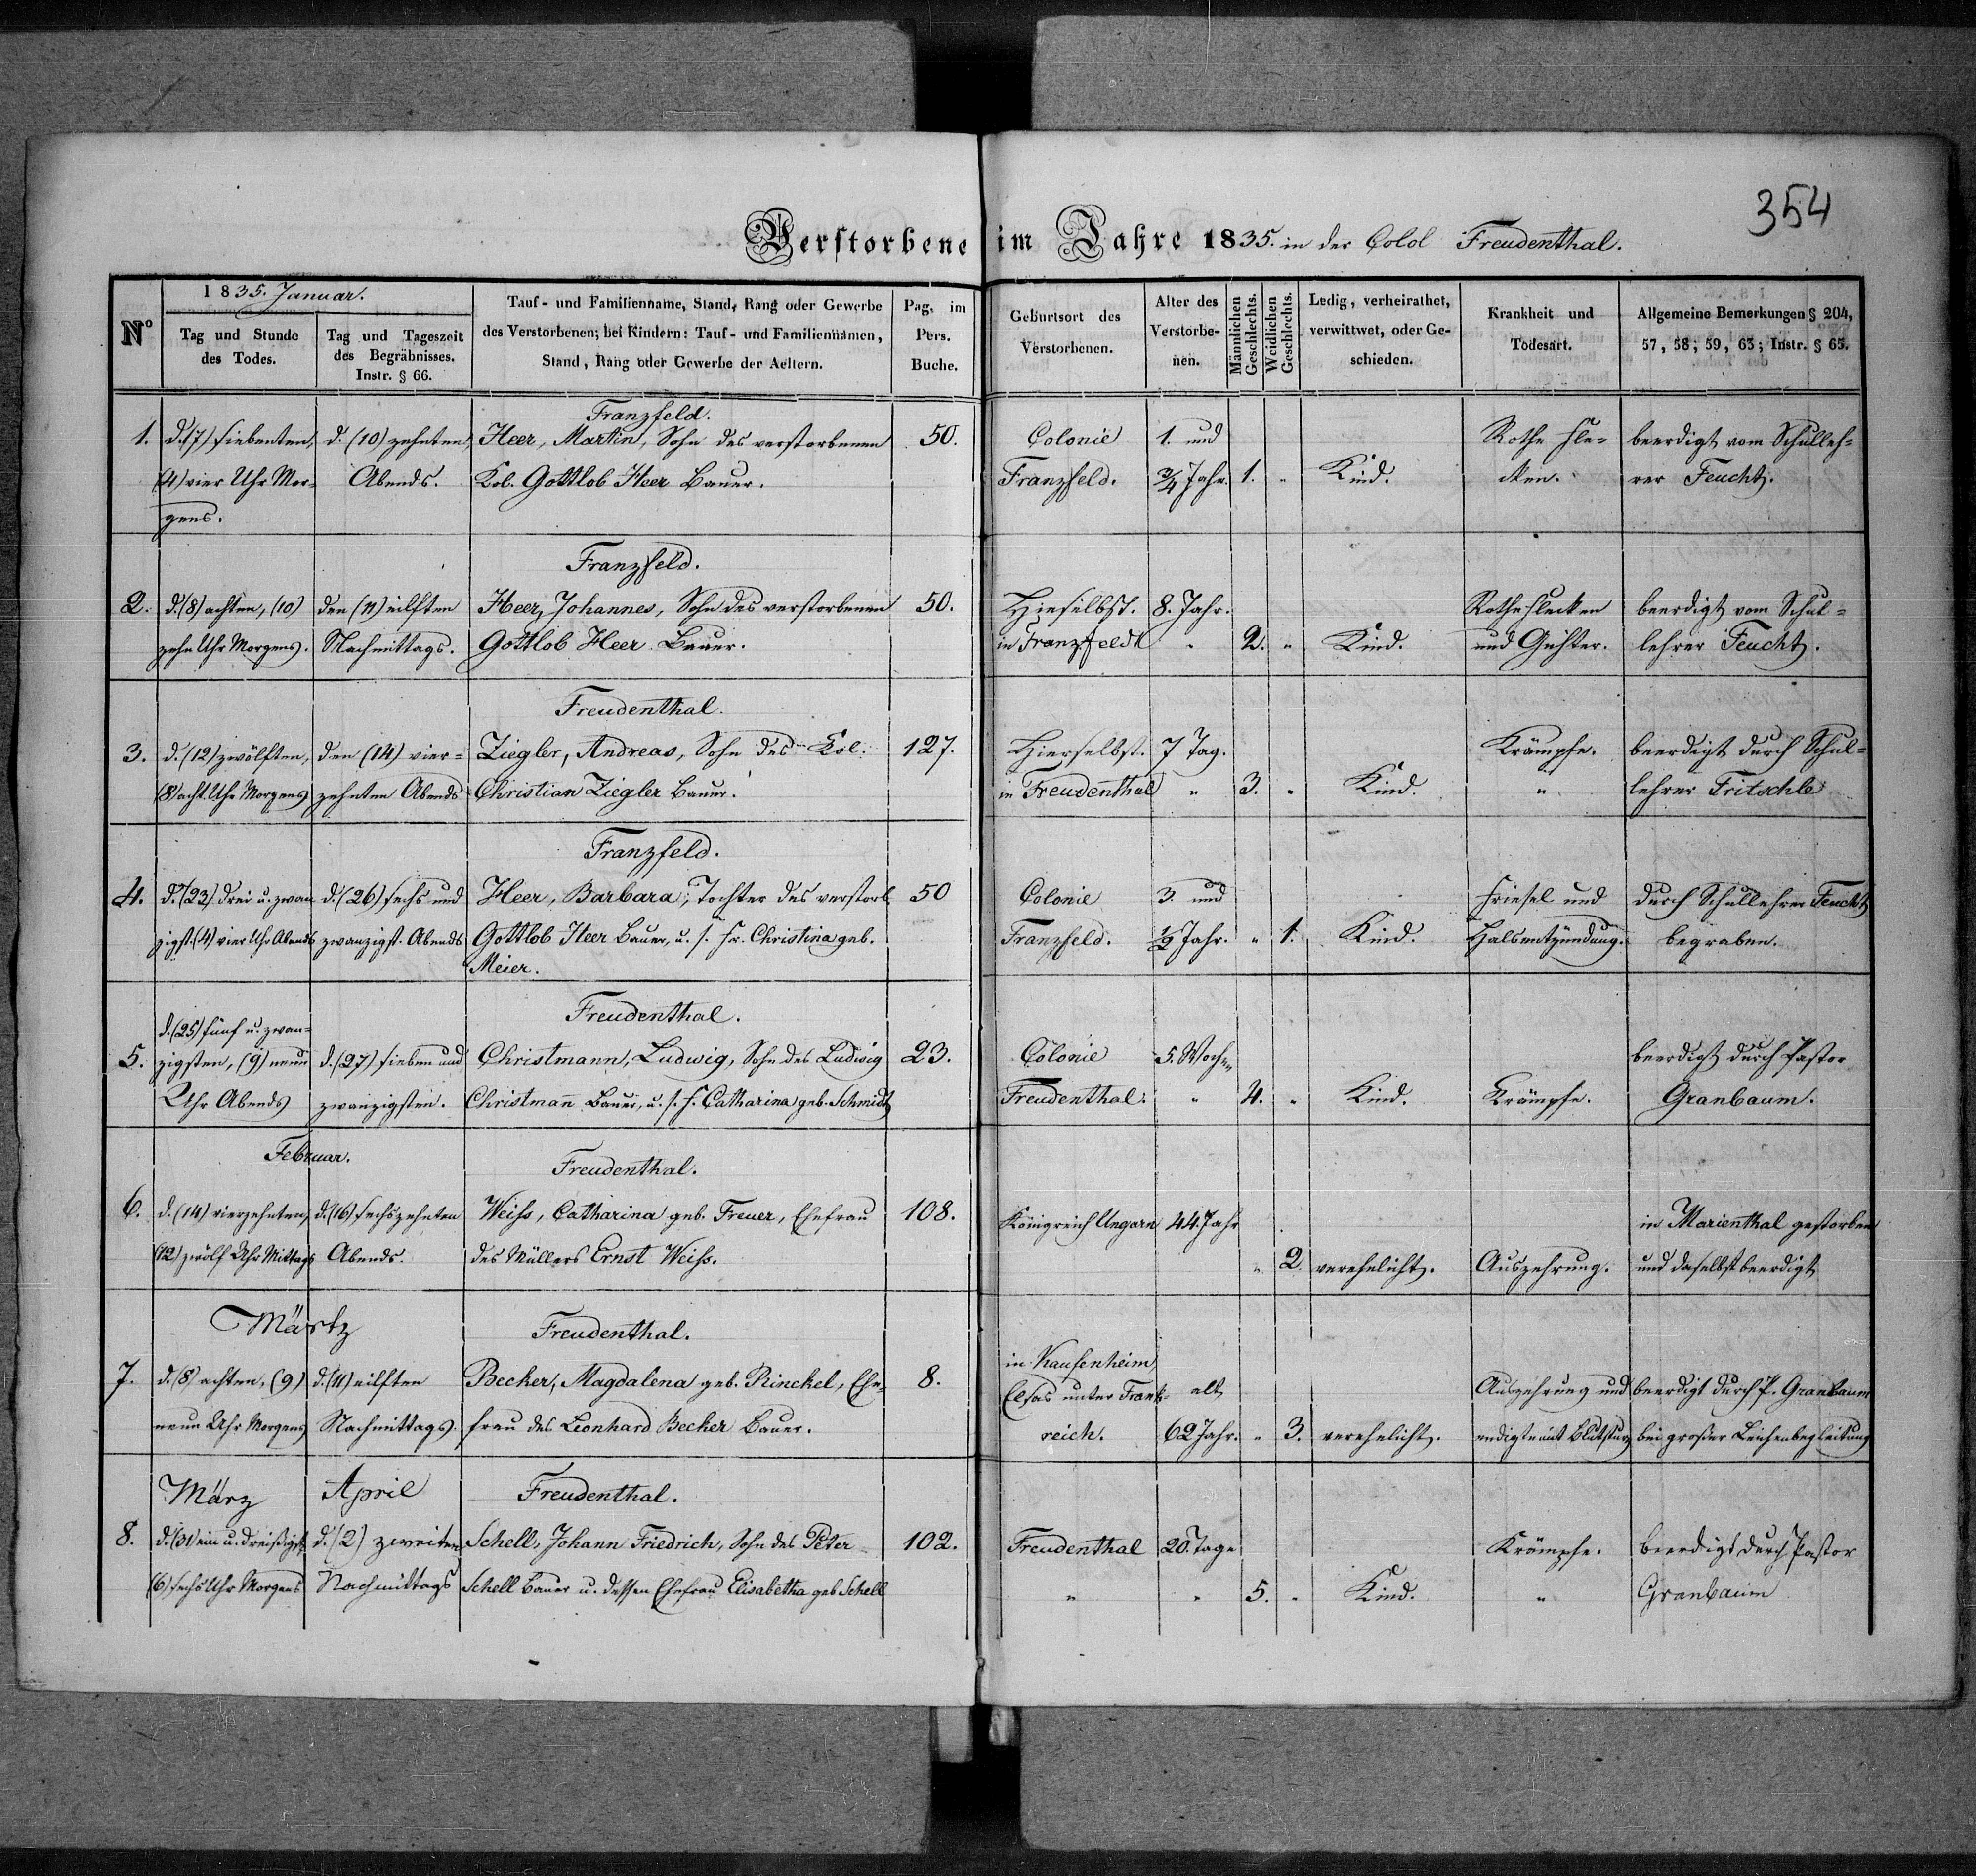 354
Verstorbene im Jahre 1835. in der Colol Freudenthal.
1835. Januar.
N°
Tag und Stunde des Todes.
Tag und Tageszeit des Begräbnisses. Instr. § 66.
Tauf- und Familienname, Stand, Rang oder Gewerbe
des Verstorbenen; bei Kindern: Tauf- und Familiennamen,
Stand, Rang oder Gewerbe der Aeltern.
Pag. im Pers. Buche.
Geburtsort des Verstorbenen.
Alter des Verstorbe-nen.
Männlichen Geschlechts.
Weiblichen Geschlechts.
Ledig, verheirathet, verwittwet, oder Ge-schieden.
Krankheit und Todesart.
Allgemeine Bemerkungen § 204, 57, 58; 59, 63; Instr. § 65.
Franzfeld.
1. d. (7) siebenten, d. (10) zehnten, Heer, Martin, Sohn des verstorbenen 50. Colonie 1. und Rothe Fle- beerdigt vom Schulleh-
(4) vier Uhr Mor- Abends. Kol. Gottlob Heer Bauer. Franzfeld. 3/4 Jahr. 1. " Kind. cken. rer Feucht.
gens.
Franzfeld.
2. d. (8) achten, (10) den (11) eilften Heer, Johannes, Sohn des verstorbenen 50. Hieselbst. 8. Jahr. Rothe Flecken beerdigt vom Schul-
zehn Uhr Morgens. Nachmittags. Gottlob Heer Bauer. in Franzfeld " 2. " Kind. und Gichter. lehrer Feucht.
Freudenthal.
3. d. (12) zwölften, den (14) vier- Ziegler, Andreas, Sohn des Kol. 127. Hierselbst. 7 Tag. Krämpfe. beerdigt durch Schul-
(8) acht Uhr Morgens zehnten Abends Christian Ziegler Bauer. in Freudenthal " 3. " Kind. " lehrer Fritschle
Franzfeld.
4. d. (23) drei u. zwan d. (26) sechs und Heer, Barbara, Tochter des verstorb. 50 Colonie 3. und Friesel und durch Schullehrer Feucht
zigst. (4) vier Uhr Abends zwanzigst. Abends Gottlob Heer Bauer, u. s. Fr. Christina geb. Franzfeld. 1/2 Jahr. " 1. Kind. Halsentzündung. begraben.
Meier.
Freudenthal.
d. (25) fünf u. zwan-
5. zigsten, (9) neun d. (27) sieben und Christmann, Ludwig, Sohn des Ludwig 23. Colonie 5. Woch. beerdigt durch Pastor
Uhr Abends zwanzigsten. Christmann Bauer, u. s. F. Catharina geb. Schmidt Freudenthal. " 4. " Kind. Krämpfe. Granbaum.
Februar. Freudenthal.
6. d. (14) vierzehnten, d. (16) sechszehnten Weiss, Catharina geb. Freuer, Ehefrau 108. Königreich Ungarn 44. Jahr in Marienthal gestorben
(12) zwölf Uhr Mittags Abends. des Müllers Ernst Weiss. " 2. verehelicht. Auszehrung. und daselbst beerdigt
Märtz Freudenthal.
in Kaufenheim,
7. d. (8) achten, (9) d. (11) eilften Becker, Magdalena geb. Rinckel, Ehe- 8. Elsas unter Frank- alt Auszehrung und beerdigt durch P. Granbaum
neun Uhr Morgens Nachmittags. frau des Leonhard Becker Bauer. reich. 62 Jahr. " 3. verehelicht. endigte mit Blutsturz bei großer Leichenbegleitung
März April Freudenthal.
8. d. (31) ein u. dreißigst. d. (2) zweiten Schell, Johann Friedrich, Sohn des Peter 102. Freudenthal 20. Tage Krämpfe. beerdigt durch Pastor
(6) sechs Uhr Morgens Nachmittags Schell Bauer u. dessen Ehefrau Elisabetha geb Schell " " 5. " Kind. " Granbaum